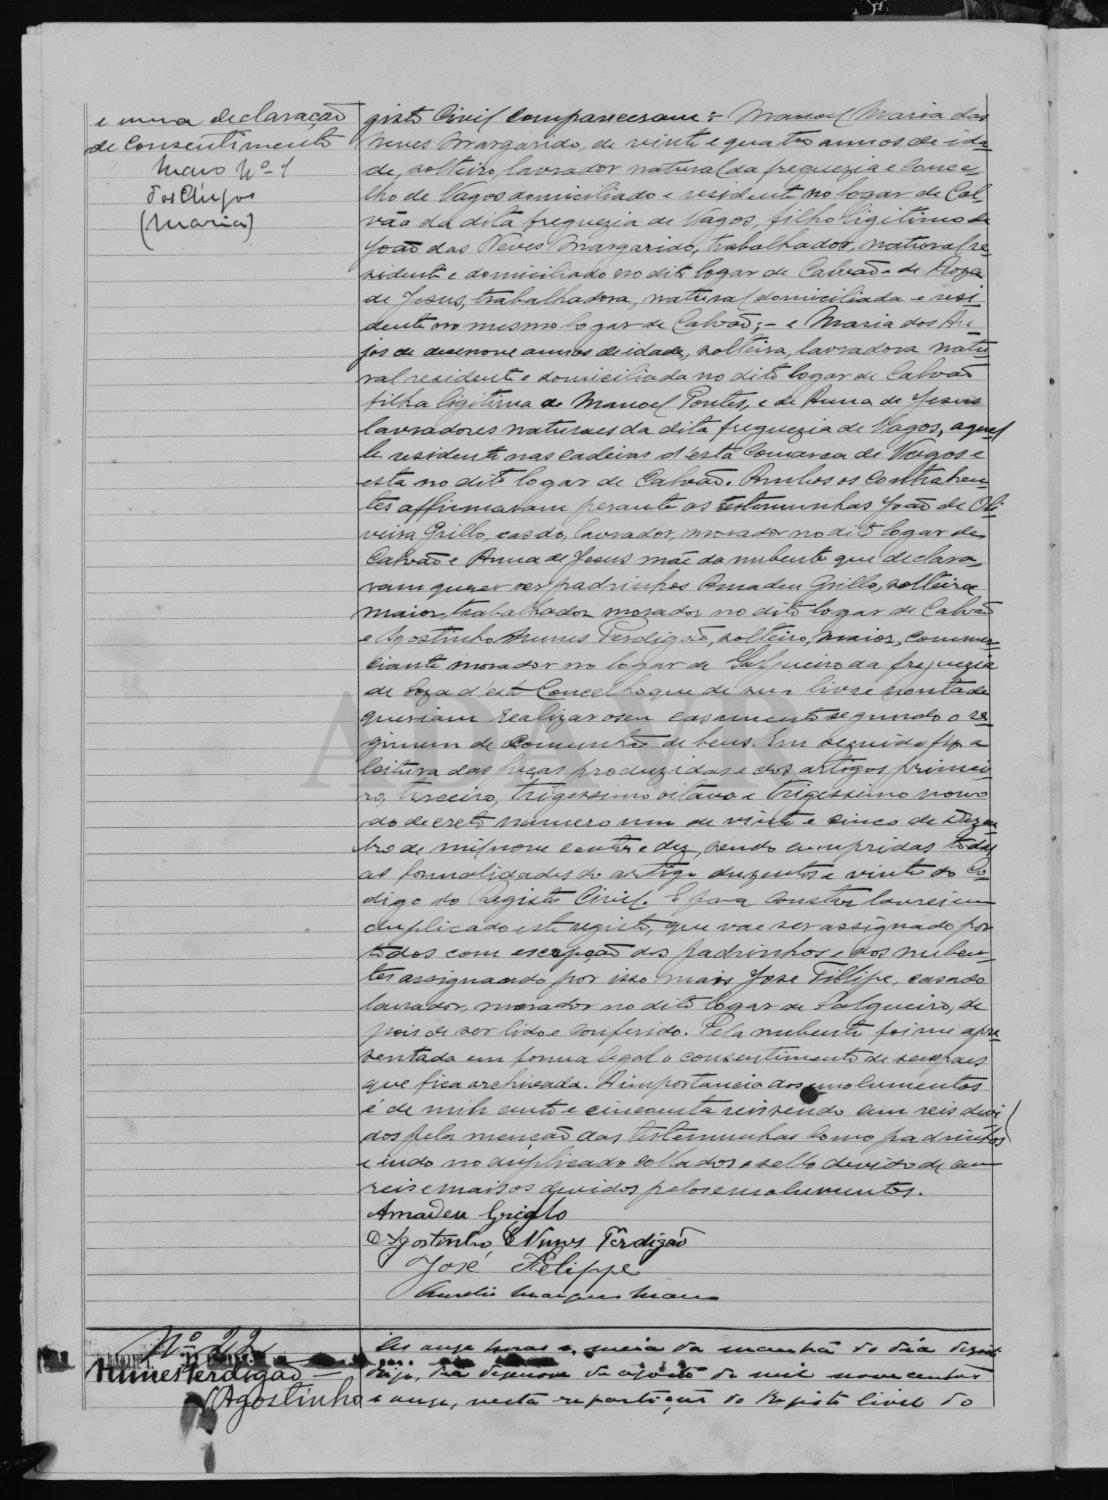 e uma declaração
de consentimento
Maço Nº 1
dos Anjos
(Maria)
gisto Civil compareceram: Manoel Maria das
Neves Margarido, de vinte e quatro annos de ida-
de, solteiro, lavrador natural da freguezia e conce-
lho de Vagos domiciliado e residente no logar de Cal-
vão da dita freguezia de Vagos, filho ligitimo de
João das Neves Margarido, trabalhador, natural re-
sidente e domiciliado no dito logar de Calvão e de Roza
de Jesus, trabalhadora, natural domiciliada e resi-
dente no mesmo logar de Calvão; - e Maria dos An-
jos de desenove annos de idade, solteira, lavradora natu-
ral residente e domiciliada no dito logar de Calvão
filha ligitima de Manoel Pontes, e de Anna de Jesus
lavradores naturaes da dita freguezia de Vagos, aquel-
le residente nas cadeias d'esta Comarca de Vagos e
esta no dito logar de Calvão. Ambos os contrahen-
tes affirmaram perante as testemunhas João de Oli-
veira Grillo, casdo, lavrador, morador no dito logar de
Calvão e Anna de Jesus mãe da nubente que declara-
ram querer ser padrinhos Amadeu Grillo, solteiro
maior, trabalhador morador no dito logar de Calvão
e Agostinho Nunes Perdigão, solteiro, maior, commer-
ciante morador no logar de Salgueiro da freguezia
de Soza d'este Concelho que de sua livre vontade
queriam realizar o seu casamento segundo o re-
gimen de comunhão de bens. Em seguida fiz a
leitura das peças produzidas e dos artigos primei-
ro, terceiro, trigessimo oitavo e trigessimo nono
do decreto numero um de vinte e cinco de Dezem-
bro de mil nove centos e dez, sendo cumpridas todas
as formalidades do artigo duzentos e vinte do Co-
digo do Registo Civil. E para constar lavrei em
duplicado este registo, que vae ser assignado por
todos com excepção dos padrinhos e dos nuben-
tes assignando por isso mais Jose Fillipe, casado
lavrador, morador no dito logar de Salgueiro, de
pois de ser lido e conferido. Pela nubente foi me apre-
sentada em forma legal o consentimento de seus paes
que fica archivada. A importancia dos emolumentos
é de mil cento e cincoenta reis sendo cem reis devi-
dos pela menção das testemunhas como padrinhos
e indo no duplicado collados o sello devido de cem
reis e mais os devidos pelos emolumentos.
Amadeu Grillo
Agostinho Nunes Perdigão
José Felippe
Aurelio Marques Mano
Nº 22
Nunes Perdigão
Agostinho
Ás onze horas e meia da manhã do dia
digo, dia desenove de agosto de mil novecentos
e onze, nesta repartição do Registo Civil do
ADAVR